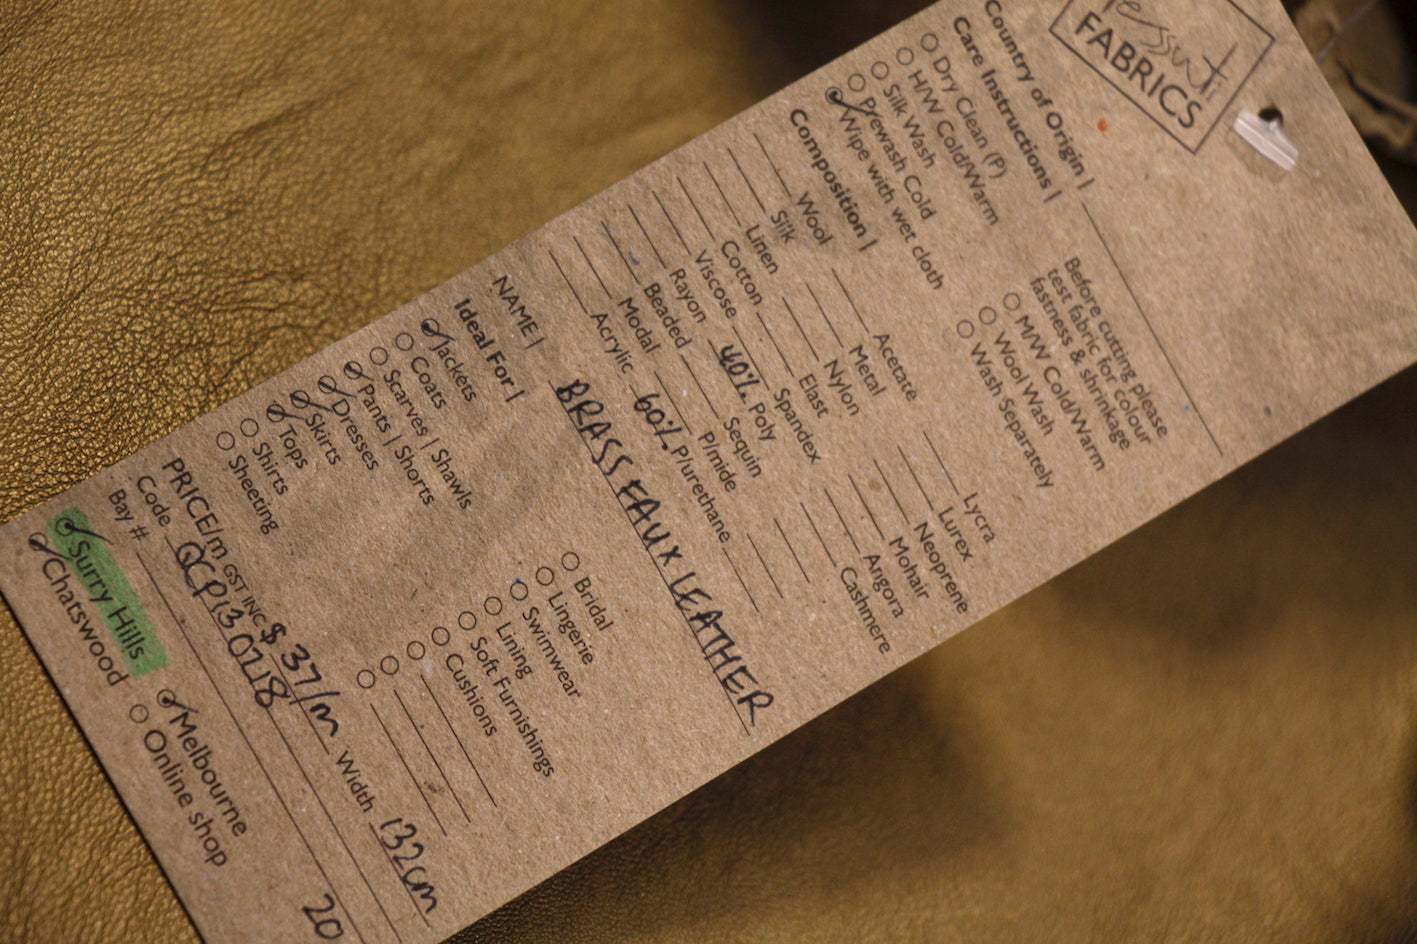 FABRICS
Country of Origin |
Care Instructions |
Dry Clean (P)
H/W Cold/Warm
Silk Wash
Prewash Cold
Wipe with wet cloth
Before cutting please
test fabric for colour
fastness & shrinkage
M/W Cold/Warm
Wool Wash
Wash Separately
Composition |
Wool
Silk
Linen
Cotton
Viscose
Rayon
Beaded
Modal
Acrylic
Acetate
Metal
Nylon
Elast
Spandex
40% Poly
Sequin
P/mide
60% P/urethane
Lycra
Lurex
Neoprene
Mohair
Angora
Cashmere
NAME | BRASS FAUX LEATHER
Ideal For |
Jackets
Coats
Scarves | Shawls
Pants | Shorts
Dresses
Skirts
Tops
Shirts
Sheeting
Bridal
Lingerie
Swimwear
Lining
Soft Furnishings
Cushions
PRICE/m GST INC $37/m Width 132cm
Code QCP130218
Bay # 20
Surry Hills
Chatswood
Melbourne
Online shop